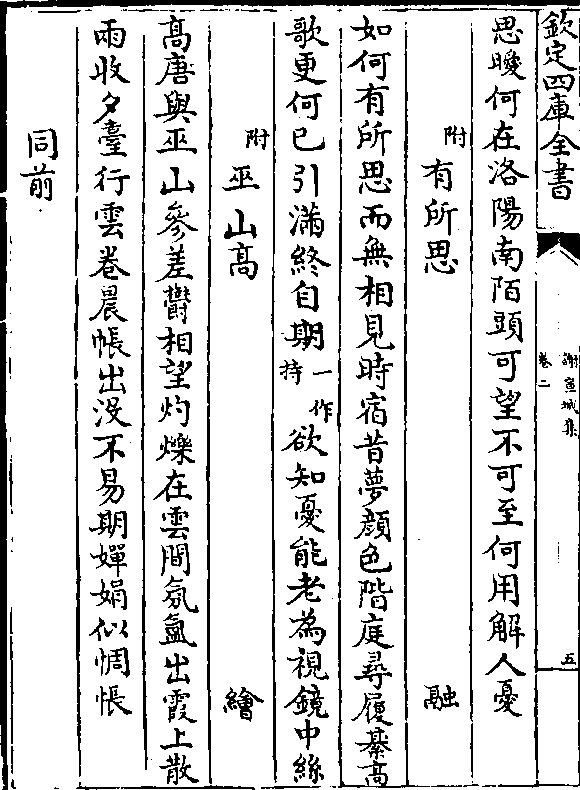 欽定四庫全書
謝宣城集
卷二
五
思曖何在洛陽南陌頭可望不可至何用解人憂
附 有所思 融
如何有所思而無相見時宿昔夢顔色階庭尋履綦高
歌更何已引滿終自期一作持欲知憂能老為視鏡中絲
附 巫山高 繪
高唐與巫山參差鬱相望灼爍在雲間氛氲出霞上散
雨收夕臺行雲卷晨帳出没不易期嬋娟似惆悵
同前